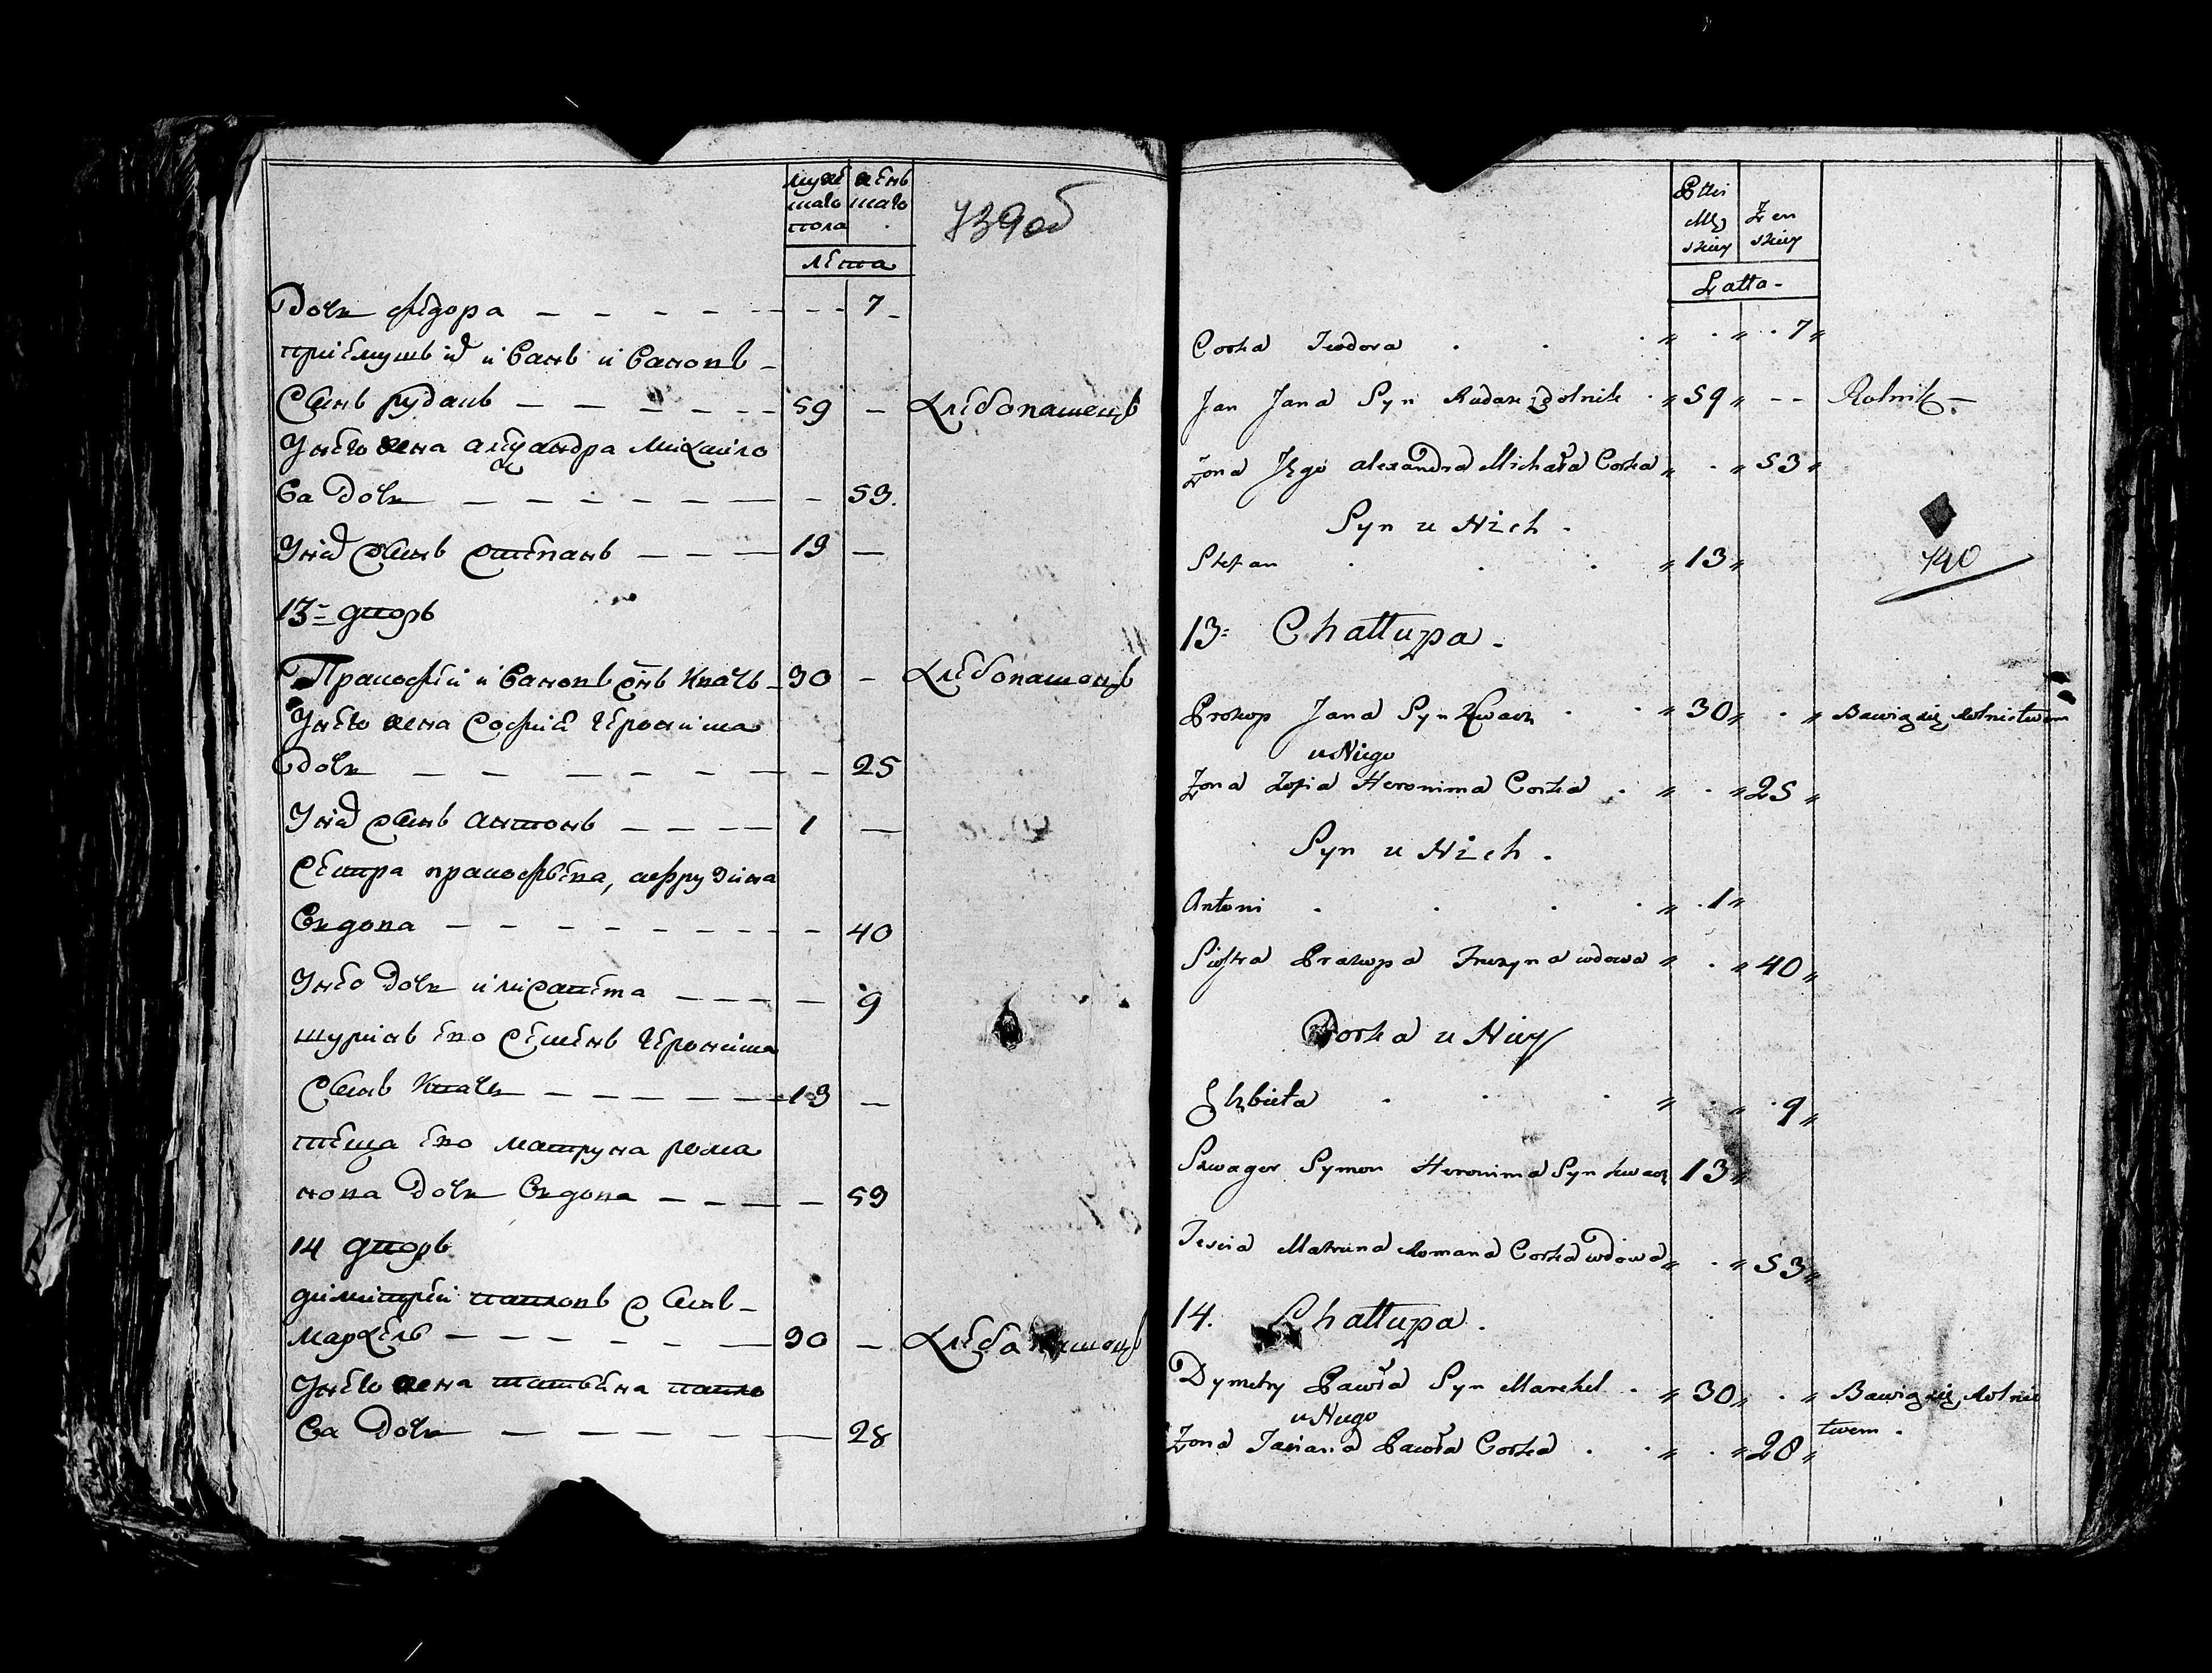 муже женъ
скаго скаго
пола
лета
739об
Дочь Федора — — — — — — 7
приемышъ и Иванъ Ивановъ
Сынъ рудакъ — — — — — 59 — хлебопашецъ
У него жена Александра Михаило
ва Дочь — — — — — — — 53.
У них Сынъ Степанъ — — — 13 —
13= дворъ
Пракофей Ивановъ Снъ Квачь — 30 — хлебопашецъ
У него жена Софиа Геронима
Дочь — — — — — — — 25
У них Сынъ антонъ — — — — 1 —
Сестра пракофьева, ефрузина
вдова — — — — — — — — 40
У нее Дочь илисавета — — — — 9
шуринъ ево Семенъ Геронима
Сынъ Квачь — — — — — — 13 —
теща ево матруна рома
нова Дочь вдова — — — — 53
14 дворъ
димитрей павловъ Сынъ —
мархель — — — — — — 30 — хлебопашецъ
У него жена татьяна павло
ва Дочь — — — — — — 28
Płci
Mę Żen
skiey skiey
Latta -
Corka Teodora . . . " . " . 7 "
Jan Jana Syn Rudak Rolnik . " 59 " - - Rolnik —
Żona Jego alexandra Michała Corka " . " 53 "
Syn u Nich .
Stefan . . . " 13 "
740
13= Chałłupa .
Prokop Jana Syn Kwacz . . " 30 " . " Bawi się Rolnictwem
u Niego
Żona Zofia Heronima Corka . " . " 25 "
Syn u Nich .
Antoni . . . . " . 1 "
Siostra Prakopa Fruzyna wdowa " . " 40 "
Corka u Niey
Elzbieta . . . " . " . 9 "
Szwagier Symon Heronima Syn kwacz 13 "
Teścia Matruna Romana Corka wdowa " . " 53 "
14. Chałłupa .
Dymetry Pawła Syn Marchel . " 30 " . " Bawi się Rolnic
u Niego
twem .
Żona Taciana Pawła Corka . " . " 28 "